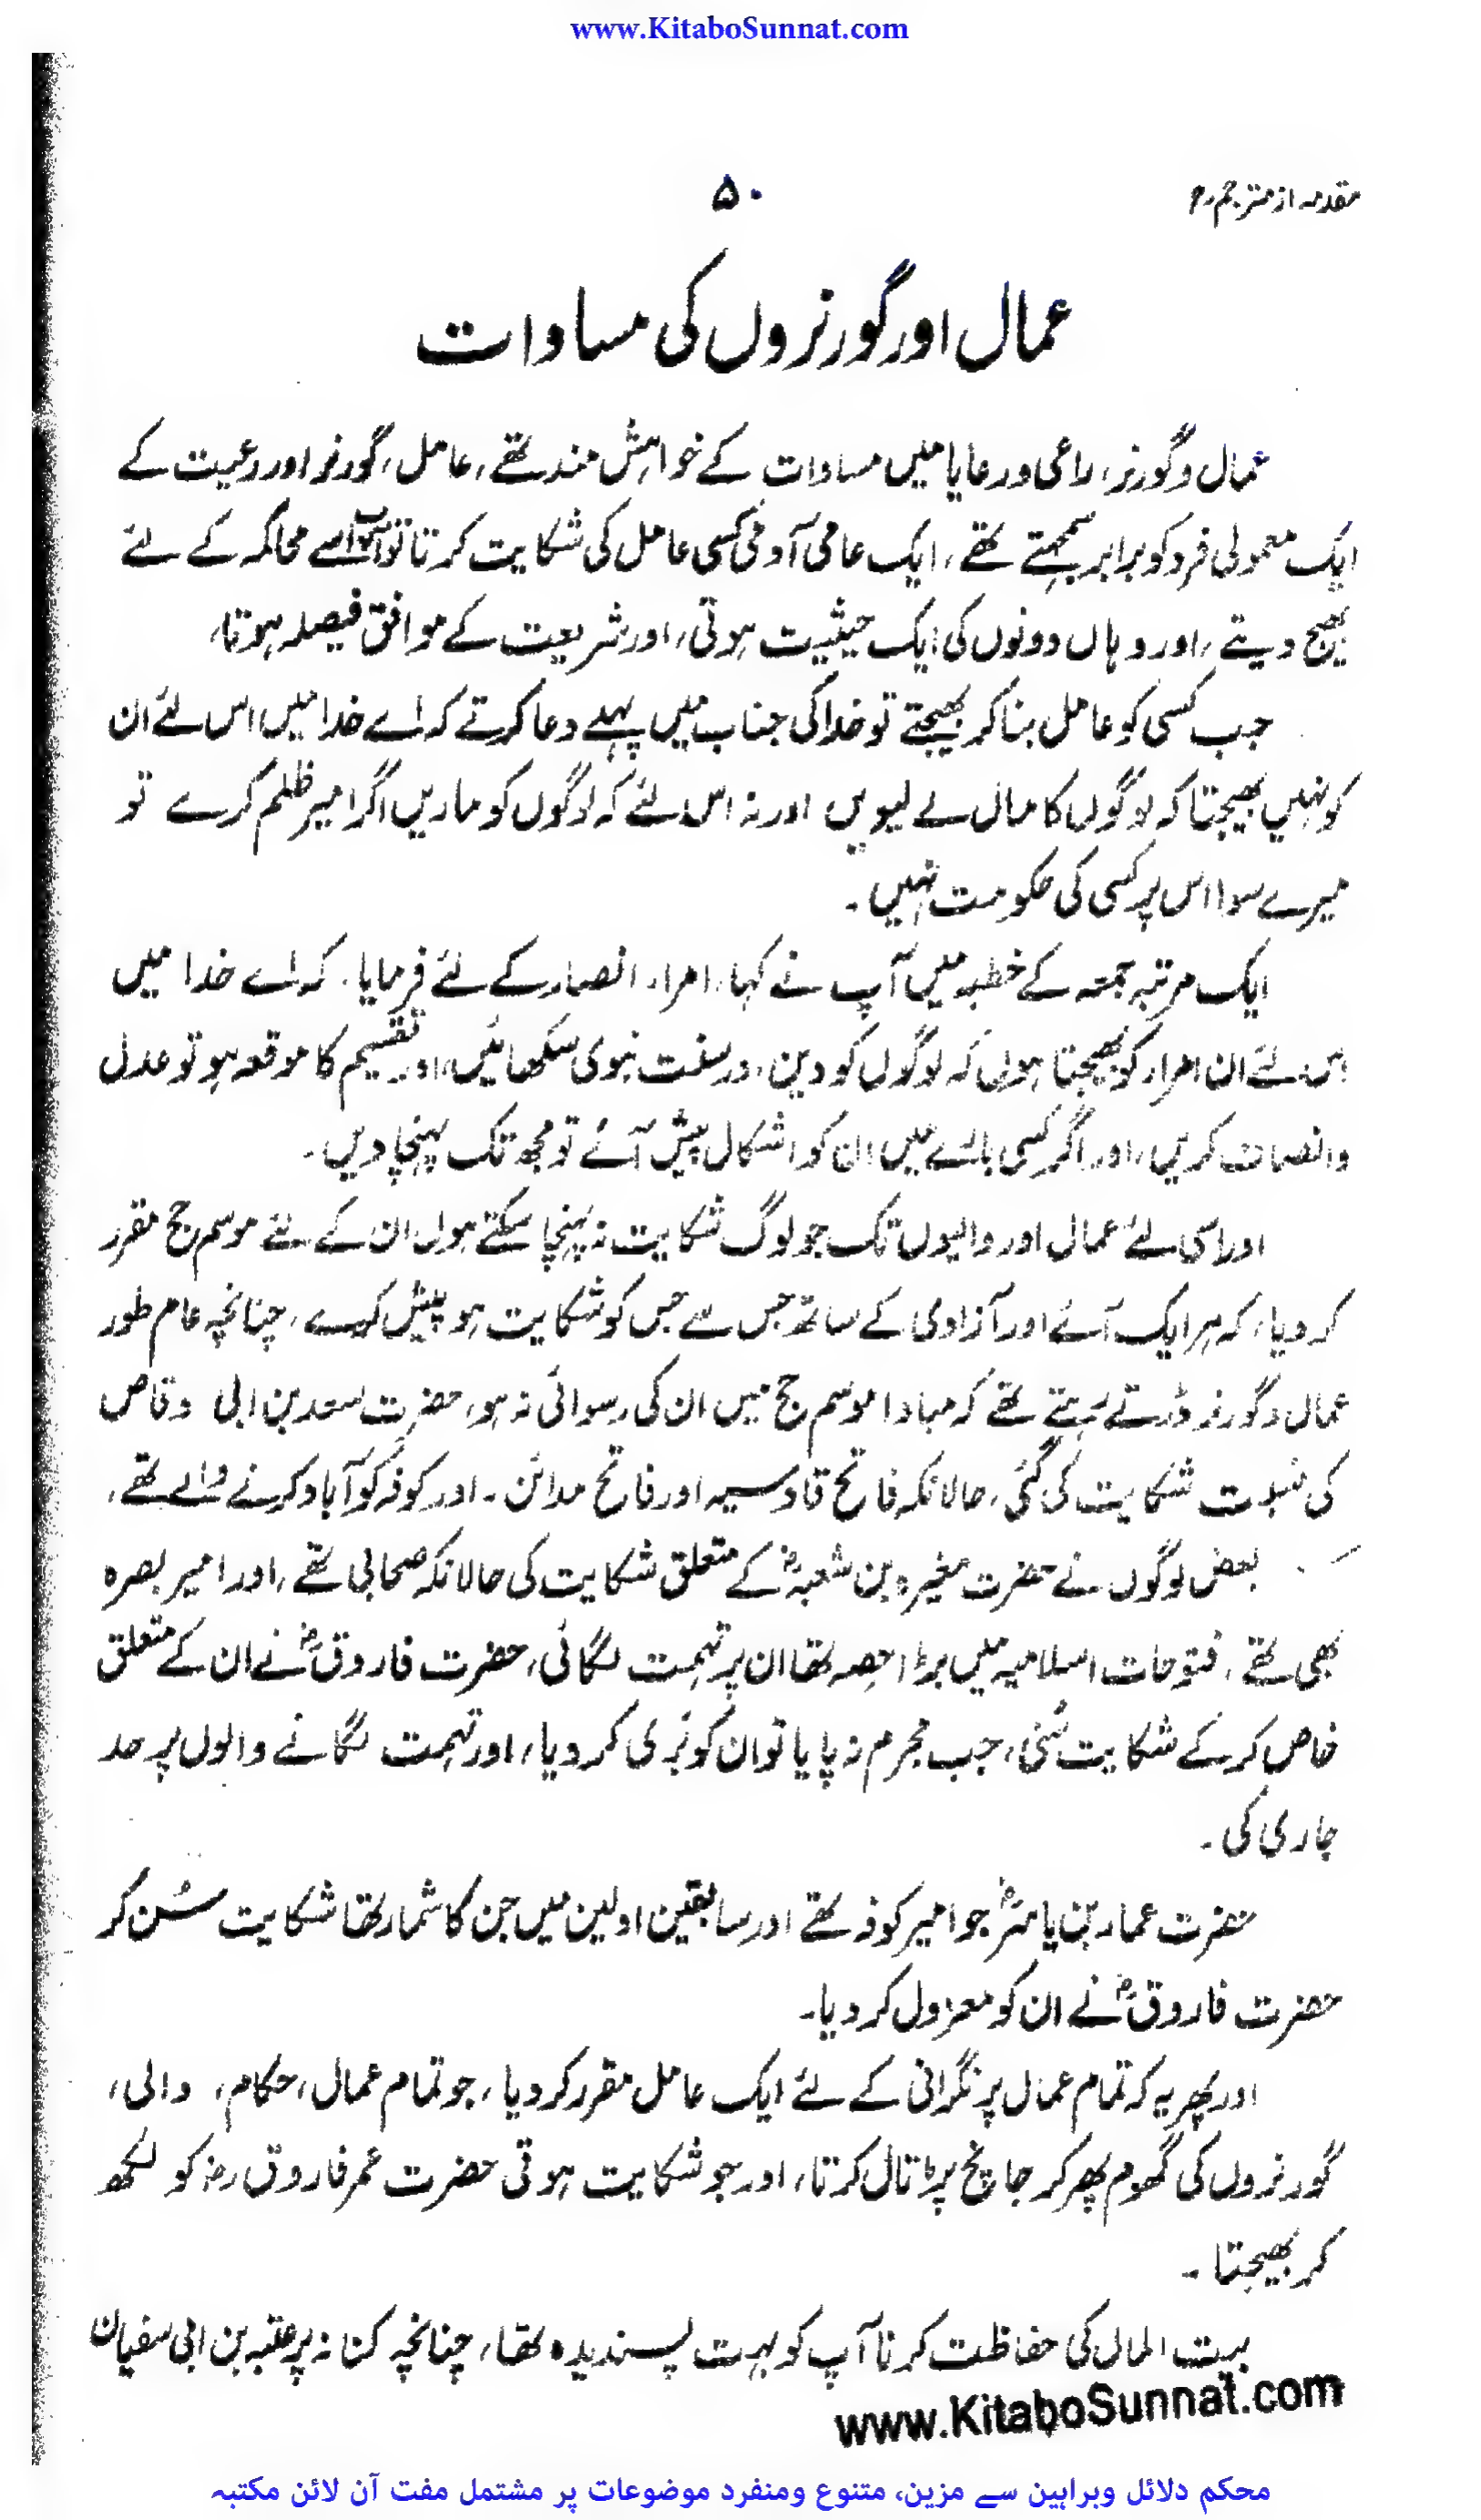 www.KitaboSunnat.com
مقدمہ از مترجم
۵۰
عمال اور گورنروں کی مساوات
عمال و گورنر، راعی و رعایا میں مساوات کے خواہش مند تھے، عامل، گورنر اور رعیت کے
ایک معمولی فرد کو برابر سمجھتے تھے، ایک عامی آدمی کسی عامل کی شکایت کرتا تو اسے محاکمہ کے لئے
بھیج دیتے، اور وہاں دونوں کی ایک حیثیت ہوتی، اور شریعت کے موافق فیصلہ ہوتا،
جب کسی کو عامل بنا کر بھیجتے تو خدا کی جناب میں پہلے دعا کرتے کہ اے خدا میں اس لئے ان
کو نہیں بھیجتا کہ لوگوں کا مال لے لیویں اور نہ اس لئے کہ لوگوں کو ماریں اگر امیر ظلم کرے تو
میرے سوا اس پر کسی کی حکومت نہیں۔
ایک مرتبہ جمعہ کے خطبہ میں آپ نے کہا، امراء انصار کے لئے فرمایا، کہ اے خدا میں
اس لئے ان امراء کو بھیجتا ہوں کہ لوگوں کو دین، در سنت نبوی سکھائیں، اور تقسیم کا موقعہ ہو تو عدل
وانصاف کریں، اور اگر کسی بارے میں ان کو اشکال پیش آئے تو مجھ تک پہنچا دیں۔
اور اسی لئے عمال اور والیوں تک جو لوگ شکایت نہ پہنچا سکتے ہوں ان کے لئے موسم حج مقرر
کر دیا، کہ ہر ایک آئے اور آزادی کے ساتھ جس سے جس کو شکایت ہو پیش کرے، چنانچہ عام طور
عمال و گورنر ڈرتے رہتے تھے کہ مبادا موسم حج میں ان کی رسوائی نہ ہو، حضرت سعد بن ابی وقاص
کی نسبت شکایت کی گئی، حالانکہ فاتح قادسیہ اور فاتح مدائن۔ اور کوفہ کو آباد کرنے والے تھے،
بعض لوگوں نے حضرت مغیرہ بن شعبہؓ کے متعلق شکایت کی حالانکہ صحابی تھے، اور امیر بصرہ
بھی تھے، فتوحات اسلامیہ میں بڑا حصہ تھا ان پر تہمت لگائی، حضرت فاروقؓ نے ان کے متعلق
خاص کر کے شکایت سُنی، جب مجرم نہ پایا تو ان کو بَری کر دیا، اور تہمت لگانے والوں پر حد
جاری کی۔
حضرت عمار بن یاسرؓ جو امیر کوفہ تھے اور سابقین اولین میں جن کا شمار تھا شکایت سُن کر
حضرت فاروقؓ نے ان کو معزول کر دیا۔
اور پھر یہ کہ تمام عمال پر نگرانی کے لئے ایک عامل مقرر کر دیا، جو تمام عمال، حکام، والی،
گورنروں کی گھوم پھر کر جانچ پڑتال کرتا، اور جو شکایت ہوتی حضرت عمر فاروق رض کو لکھ
کر بھیجتا۔
بیت المال کی حفاظت کرنا آپ کو بہت پسندیدہ تھا، چنانچہ کنانہ پر عتبہ بن ابی سفیان
www.KitaboSunnat.com
محکم دلائل وبراہین سے مزین، متنوع ومنفرد موضوعات پر مشتمل مفت آن لائن مکتبہ